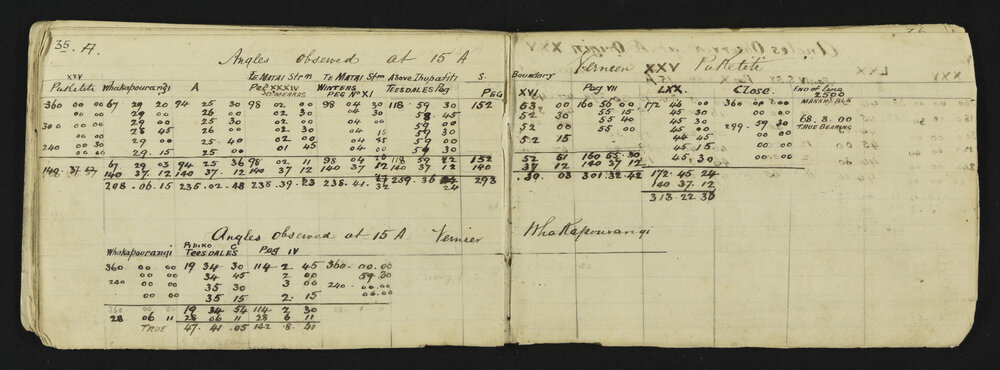 35. A.
Angles observed at 15 A
XXV
Puketiti Whakapourangi A
Te Matai Strm Peg XXXIV
Te Matai Stm Winters Peg No XI
Above Teesdales Peg
S. Peg
360 00 00 67 29 20 94 25 30 98 02 00 98 04 30 118 59 30 152
00 00 29 00 26 00 02 30 04 30 58 45
300 00 00 29 00 25 30 02 00 04 00 59 00
00 00 28 45 26 00 02 30 04 15 59 30
240 00 30 29 00 25 40 02 00 04 30 59 00
00 00 29 15 25 00 01 45 04 00 59 30
67 29 03 94 25 36 98 02 11 98 04 118 59 152
140 37 12 140 37 12 140 37 12 140 37 12 140 37 12 140
208.06.15 235.02.48 238.39.23 238.41. 259.36 293
Angles observed at 15 A Vernier
Whakapourangi
Teesdales
Peg IV
360 00 00 19 34 30 114 2 45 360.00.00
00 00 34 45 2 00 59 30
240 00 00 35 30 3 00 240.00.00
00 00 35 15 2.15 00.00
360 00 00 19 34 54 114 2 30
28 06 11 28 06 11 28 6 11
TRUE 47.41.05 142.8.41
Vernier XXV Puketiti
Boundary
XVI Peg VII LXX. Close. End of Long 2500
53 00 160 56 00 172 46 00 360 00 00
52 30 55 15 45 00 68.8.00
52 00 55 40 45 30 299.59 30 True Bearing
52 00 55 00 45 00
52 15 44 00
45 15
52 51 160 53 30 45.30
37 12 140 37 12
.30 03 301.32.42 172.45 24
140 37.12
313.22 36
Whakapourangi